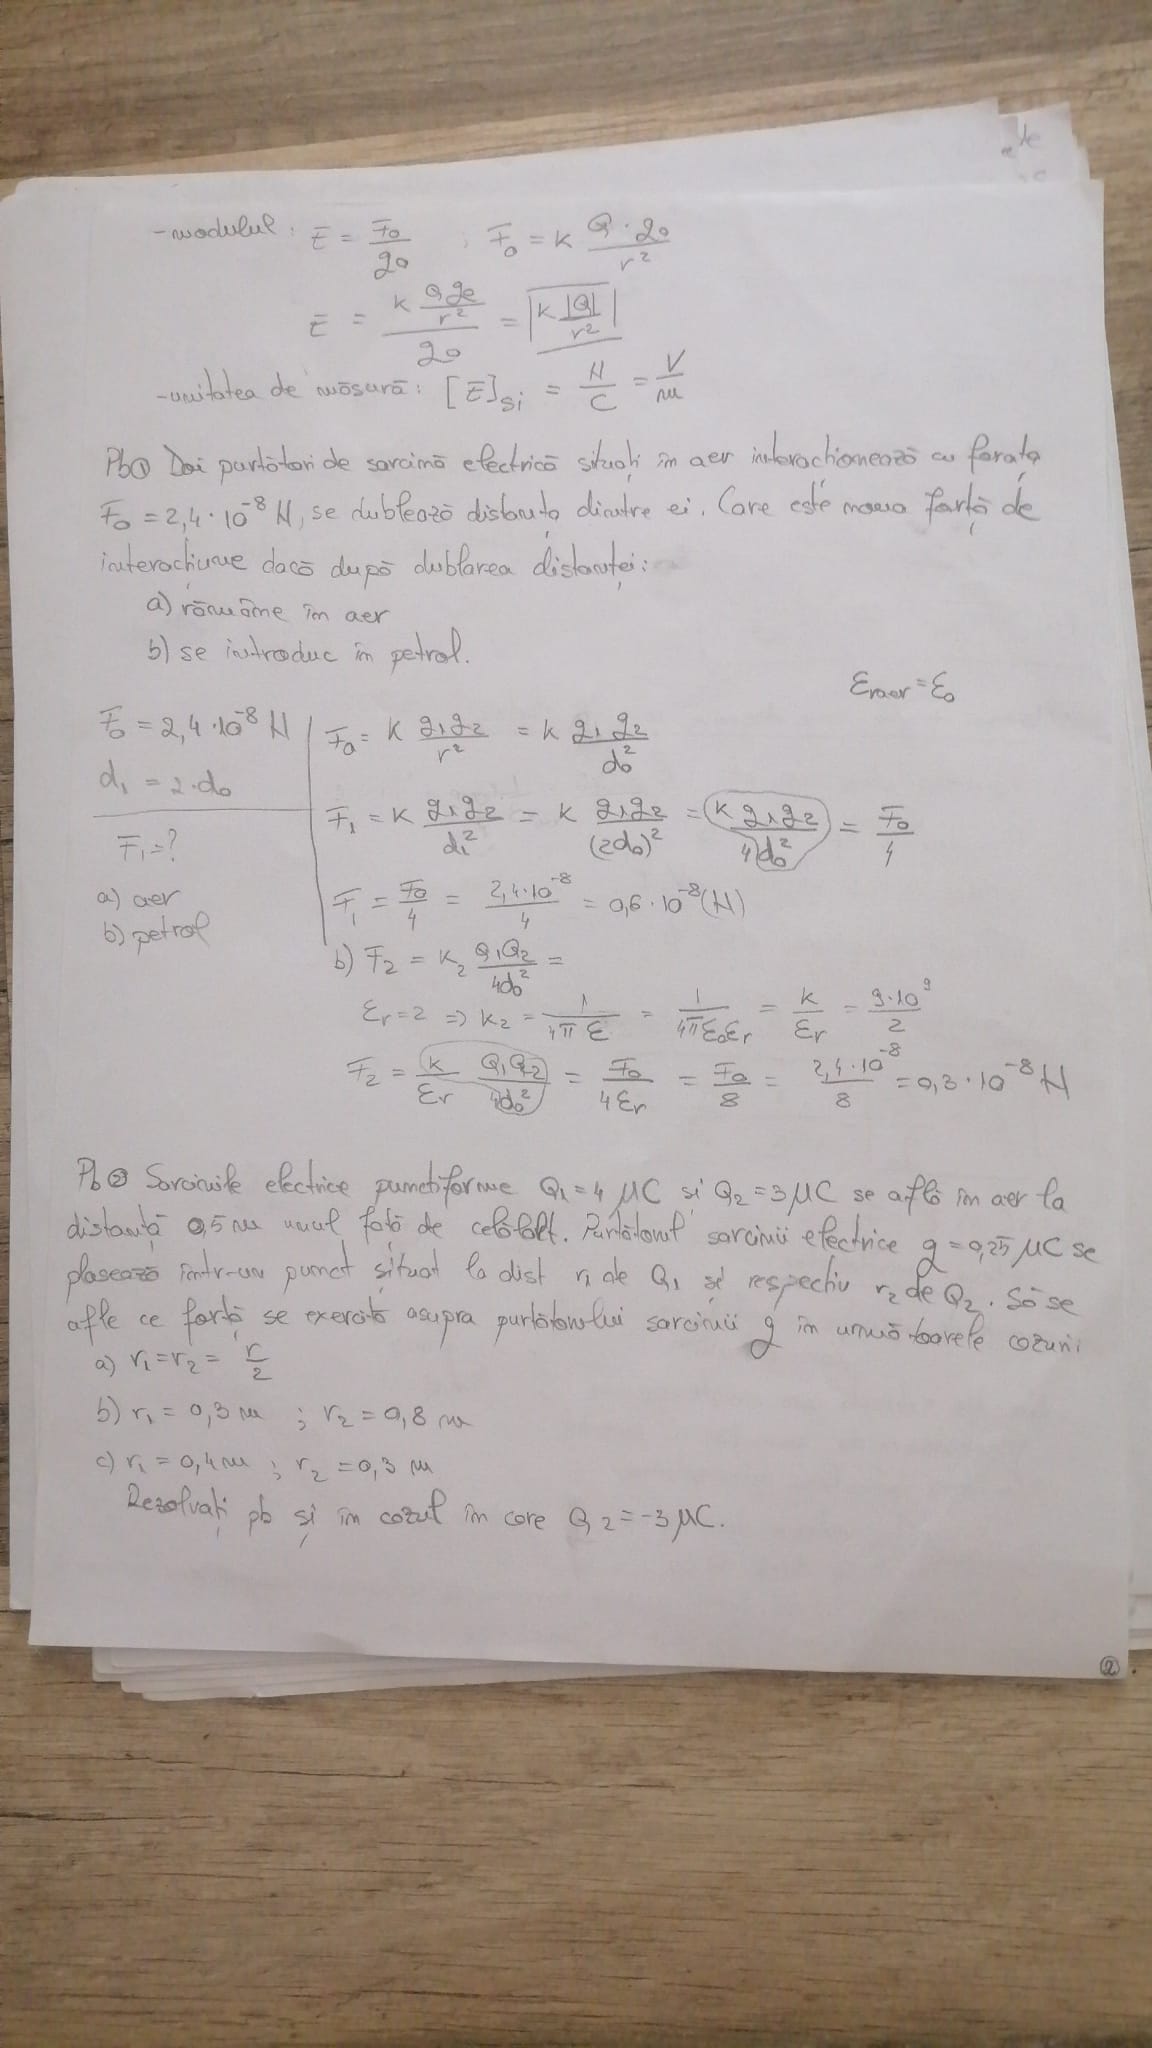 -modulul: E = F₀/q₀ ; F₀ = k Q·q₀/r²
E = (k Qq₀/r²)/q₀ = k |Q|/r²
-unitatea de măsură: [E]SI = N/C = V/m
Pb① Doi purtători de sarcină electrică situați în aer interacționează cu forața
F₀ = 2,4·10⁻⁸ N, se dublează distanța dintre ei. Care este noua forță de
interacțiune dacă după dublarea distanței:
a) rămâne în aer
b) se introduc în petrol.
εraer = ε₀
F₀ = 2,4·10⁻⁸ N
d₁ = 2·d₀
F₁ = ?
a) aer
b) petrol
F₀ = k q₁q₂/r² = k q₁q₂/d₀²
F₁ = k q₁q₂/d₁² = k q₁q₂/(2d₀)² = k q₁q₂/4d₀² = F₀/4
F₁ = F₀/4 = 2,4·10⁻⁸/4 = 0,6·10⁻⁸ (N)
b) F₂ = k₂ Q₁Q₂/4d₀² =
εr = 2 => k₂ = 1/4πε = 1/4πε₀εr = k/εr = 9·10⁹/2
F₂ = k/εr Q₁Q₂/4d₀² = F₀/4εr = F₀/8 = 2,4·10⁻⁸/8 = 0,3·10⁻⁸ N
Pb② Sarcinile electrice punctiforme Q₁ = 4 μC și Q₂ = 3 μC se află în aer la
distanță 0,5 m unul față de celălalt. Purtătorul sarcinii electrice q = 0,25 μC se
plasează într-un punct situat la dist r₁ de Q₁ și respectiv r₂ de Q₂. Să se
afle ce forță se exercită asupra purtătorului sarcinii q în următoarele cazuri:
a) r₁ = r₂ = r/2
b) r₁ = 0,3 m ; r₂ = 0,8 m
c) r₁ = 0,4 m ; r₂ = 0,3 m
Rezolvați pb și în cazul în care Q₂ = -3 μC.
②